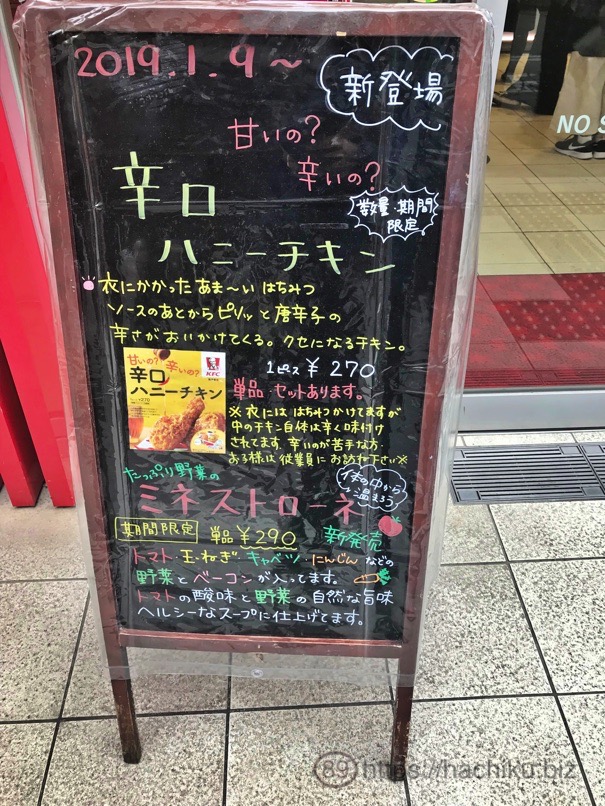 2019.1.9～
新登場
甘いの?
辛いの?
辛口
数量・期間
限定。
ハニーチキン
衣にかかったあま〜いはちみつ
ソースのあとからピリッと唐辛子の
辛さがおいかけてくる。クセになるチキン。
甘いの? 辛いの?
辛口
ハニーチキン
KFC
1ピース ¥270
単品 セットあります。
※衣にははちみつかけてますが
中のチキン自体は辛く味付け
されてます。辛いのが苦手な方・
お子様は従業員にお訪ね下さい※
たっぷり野菜の
体の中から
温まろう
ミネストローネ
期間限定 単品¥290
新発売
トマト・玉ねぎ・キャベツ・にんじんなどの
野菜とベーコンが入ってます。
トマトの酸味と野菜の自然な旨味
ヘルシーなスープに仕上げてます。
NO S
89 https://hachiku.biz